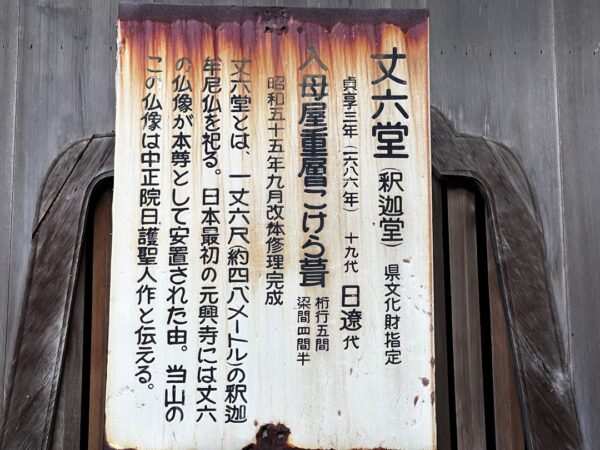 丈六堂（釈迦堂） 県文化財指定
貞享三年（一六八六年） 十九代 日遼代
入母屋重層こけら葺 桁行五間
梁間四間半
昭和五十五年九月改体修理完成
丈六堂とは、一丈六尺（約四・八メートル）の釈迦
牟尼仏を祀る。日本最初の元興寺には丈六
の仏像が本尊として安置された由。当山の
この仏像は中正院日護聖人作と伝える。